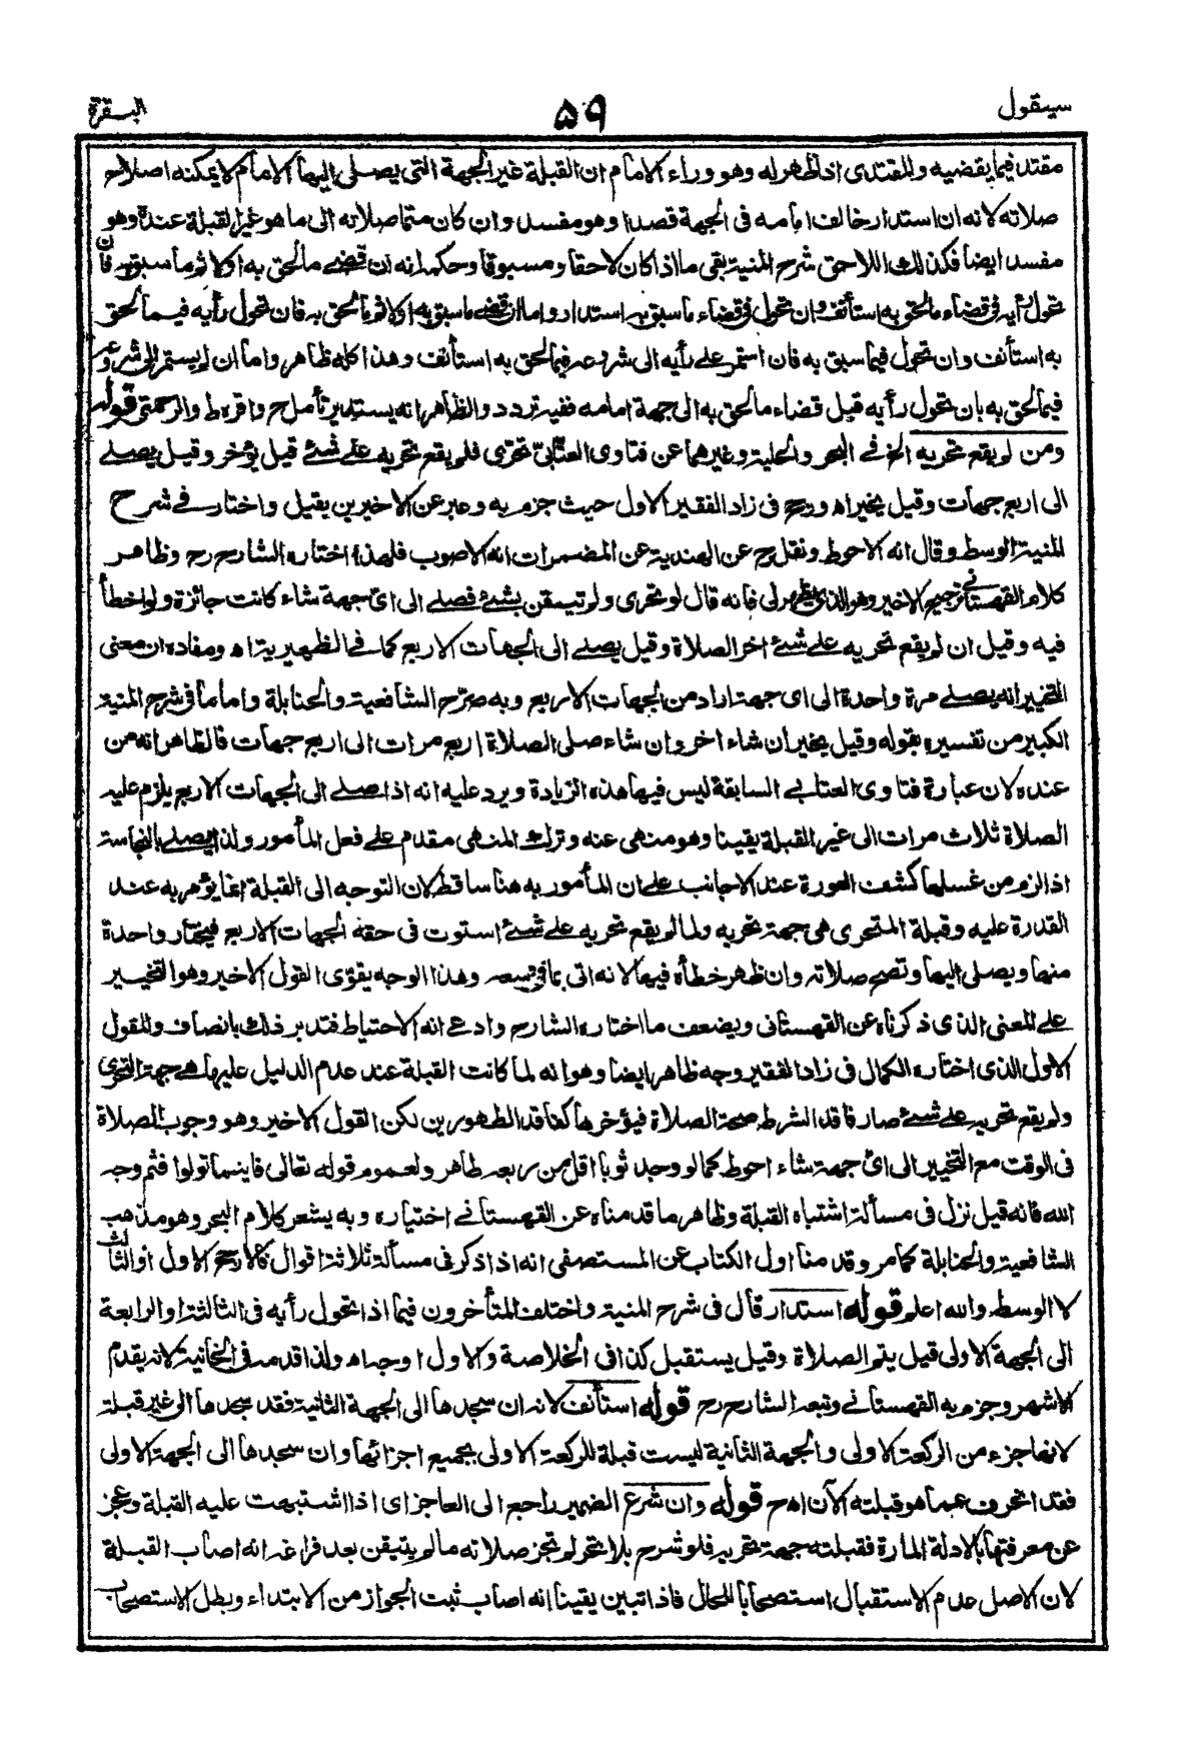 سيقول
۵۹
البقرة
مقتد فيما يقضيه والمقتدى اذا ظهر له وهو وراء الامام ان القبلة غير الجهة التى يصلى اليها الامام لا يمكنه اصلاح
صلاته لانه ان استدار خالف امامه فى الجهة قصدا وهو مفسد وان كان متما صلاته الى ما هو غير القبلة عنده وهو
مفسد ايضا فكذلك اللاحق شرح المنية بقى ما اذا كان لاحقا ومسبوقا وحكمه انه ان قضى ما لحق به اولا ثم ما سبق به فان
تحول رأيه فى قضاء ما لحق به استأنف وان تحول فى قضاء ما سبق به استدار واما ان قضى ما سبق به اولا ثم ما لحق به فان تحول رأيه فيما لحق
به استأنف وان تحول فيما سبق به فان استمر على رأيه الى شروعه فيما لحق به استأنف وهذا كله ظاهر واما ان لم يستمر الى شروعه
فيما لحق به بان تحول رأيه قبل قضاء ما لحق به الى جهة امامه ففيه تردد والظاهر انه يستدير تأمل ح واقره ط والرحمتى قوله
ومن لم يقع تحريه الخ فى البحر والحلية وغيرهما عن فتاوى العتابى تحرى فلم يقع تحريه على شئ قيل يؤخر وقيل يصلى
الى اربع جهات وقيل يخير اه ورجح فى زاد الفقير الاول حيث جزم به وعبر عن الاخيرين بقيل واختار فى شرح
المنية الوسط وقال انه الاحوط ونقل ح عن الهندية عن المضمرات انه الاصوب فلهذا اختاره الشارح رح وظاهر
كلام القهستانى ترجيح الاخير وهو الذى يظهر لى فانه قال لو تحرى ولم تيسقن بشئ فصلى الى اىّ جهة شاء كانت جائزة ولو اخطأ
فيه وقيل ان لم يقع تحريه على شئ اخر الصلاة وقيل يصلى الى الجهات الاربع كما فى الظهيرية اه ومفاده ان معنى
التخيير انه يصلى مرة واحدة الى اى جهة اراد من الجهات الاربع وبه صرّح الشافعية والحنابلة واما ما فى شرح المنية
الكبير من تفسيره بقوله وقيل يخير ان شاء اخر وان شاء صلى الصلاة اربع مرات الى اربع جهات فالظاهر انه من
عنده لان عبارة فتاوى العتابى السابقة ليس فيها هذه الزيادة ويرد عليه انه اذا صلى الى الجهات الاربع يلزم عليه
الصلاة ثلاث مرات الى غير القبلة يقينا وهو منهى عنه وترك المنهى مقدم على فعل المأمور ولذا يصلى بالنجاسة
اذا لزم من غسلها كشف العورة عند الاجانب على ان المأمور به هنا ساقط لان التوجه الى القبلة انما يؤمر به عند
القدرة عليه وقبلة المتحرى هى جهة تحريه ولما لم يقع تحريه على شئ استوت فى حقه الجهات الاربع فيختار واحدة
منها ويصلى اليها وتصح صلاته وان ظهر خطأه فيها لانه اتى بما فى وسعه وهذا الوجه يقوّى القول الاخير وهو التخيير
على المعنى الذى ذكرناه عن القهستانى ويضعف ما اختاره الشارح وادعى انه الاحتياط فتدبر ذلك بانصاف وللقول
الاول الذى اختاره الكمال فى زاد الفقير وجه ظاهر ايضا وهو انه لما كانت القبلة عند عدم الدليل عليها هى جهة التحرى
ولم يقع تحريه على شئ صار فاقد الشرط صحة الصلاة فيؤخرها كفاقد الطهورين لكن القول الاخير وهو وجوب الصلاة
فى الوقت مع التخيير الى اىّ جهة شاء احوط كما لو وجد ثوبا اقل من ربعه طاهر ولعموم قوله تعالى فاينما تولوا فثم وجه
الله فانه قيل نزل فى مسألة اشتباه القبلة وظاهر ما قدمناه عن القهستانى اختياره وبه يشعر كلام البحر وهو مذهب
الشافعية والحنابلة كما مر وقدمنا اول الكتاب عن المستصفى انه اذا ذكر فى مسألة ثلاثة اقوال فالارجح الاول او الثالث
لا الوسط والله اعلم قوله استدار قال فى شرح المنية واختلف المتأخرون فيما اذا تحول رأيه فى الثالثة او الرابعة
الى الجهة الاولى قيل يتم الصلاة وقيل يستقبل كذا فى الخلاصة والاول اوجه اه ولذا قدمه فى الخانية لانه يقدم
الاشهر وجزم به القهستانى وتبعه الشارح رح قوله استأنف لانه ان سجدها الى الجهة الثانية فقد سجدها الى غير قبلته
لانها جزء من الركعة الاولى والجهة الثانية ليست قبلة للركعة الاولى بجميع اجزائها وان سجدها الى الجهة الاولى
فقد انحرف عما هو قبلته الآن اه ح قوله وان شرع الضمير راجع الى العاجز اى اذا اشتبهت عليه القبلة وعجز
عن معرفتها بالادلة المارة فقبلته جهة تحريه فلو شرح بلا تحر لم تجز صلاته ما لم يتيقن بعد فراغه انه اصاب القبلة
لان الاصل عدم الاستقبال استصحابا للحال فاذا تبين يقينا انه اصاب ثبت الجواز من الابتداء وبطل الاستصحاب